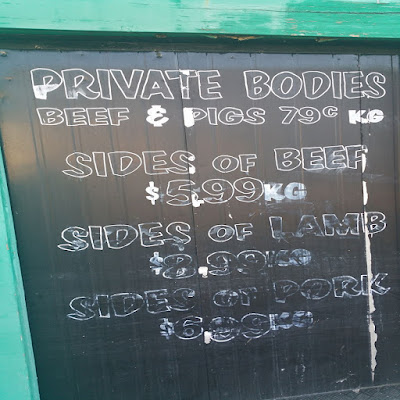 PRIVATE BODIES
BEEF & PIGS 79c KG
SIDES OF BEEF
$5.99KG
SIDES OF LAMB
$8.99KG
SIDES OF PORK
$6.99KG